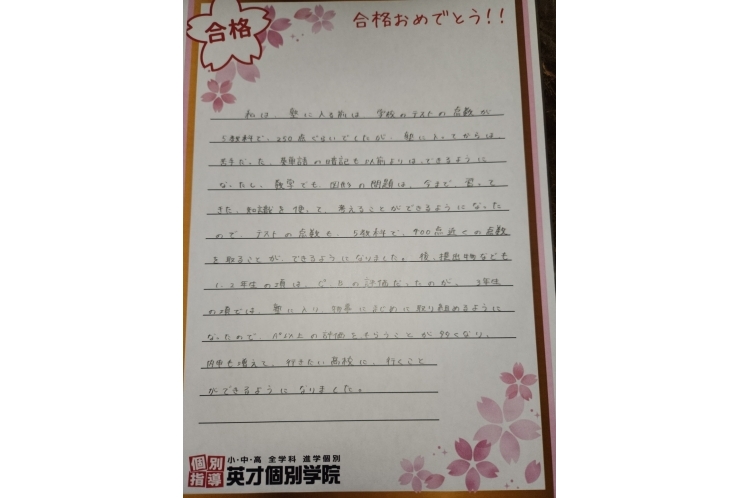 合格
合格おめでとう!!
私は、塾に入る前は 学校のテストの点数が
5教科で、250点ぐらいでしたが、塾に入ってからは
苦手だった、英単語の暗記も以前よりは、できるように
なったし、数学でも、図形の問題は、今まで、習って
きた、知識を使って、考えることができるようになった
ので、テストの点数も、5教科で、400点近くの点数
を取ることが、できるようになりました。後、提出物なども
1、2年生の頃は、の評価だったのが、3年生
の頃では、塾に入り、まじめに取り組めるように
なったので、以上の評価をもらうことが多くなり、
内申も増えて、行きたい高校に、行くこと
ができるようになりました。
個別指導
小・中・高 全学科 進学個別
英才個別学院